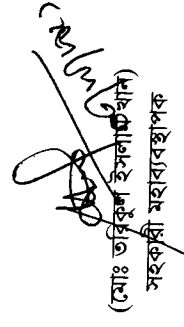 (মোঃ তরিকুল ইসলাম খান)
সহকারী মহাব্যবস্থাপক